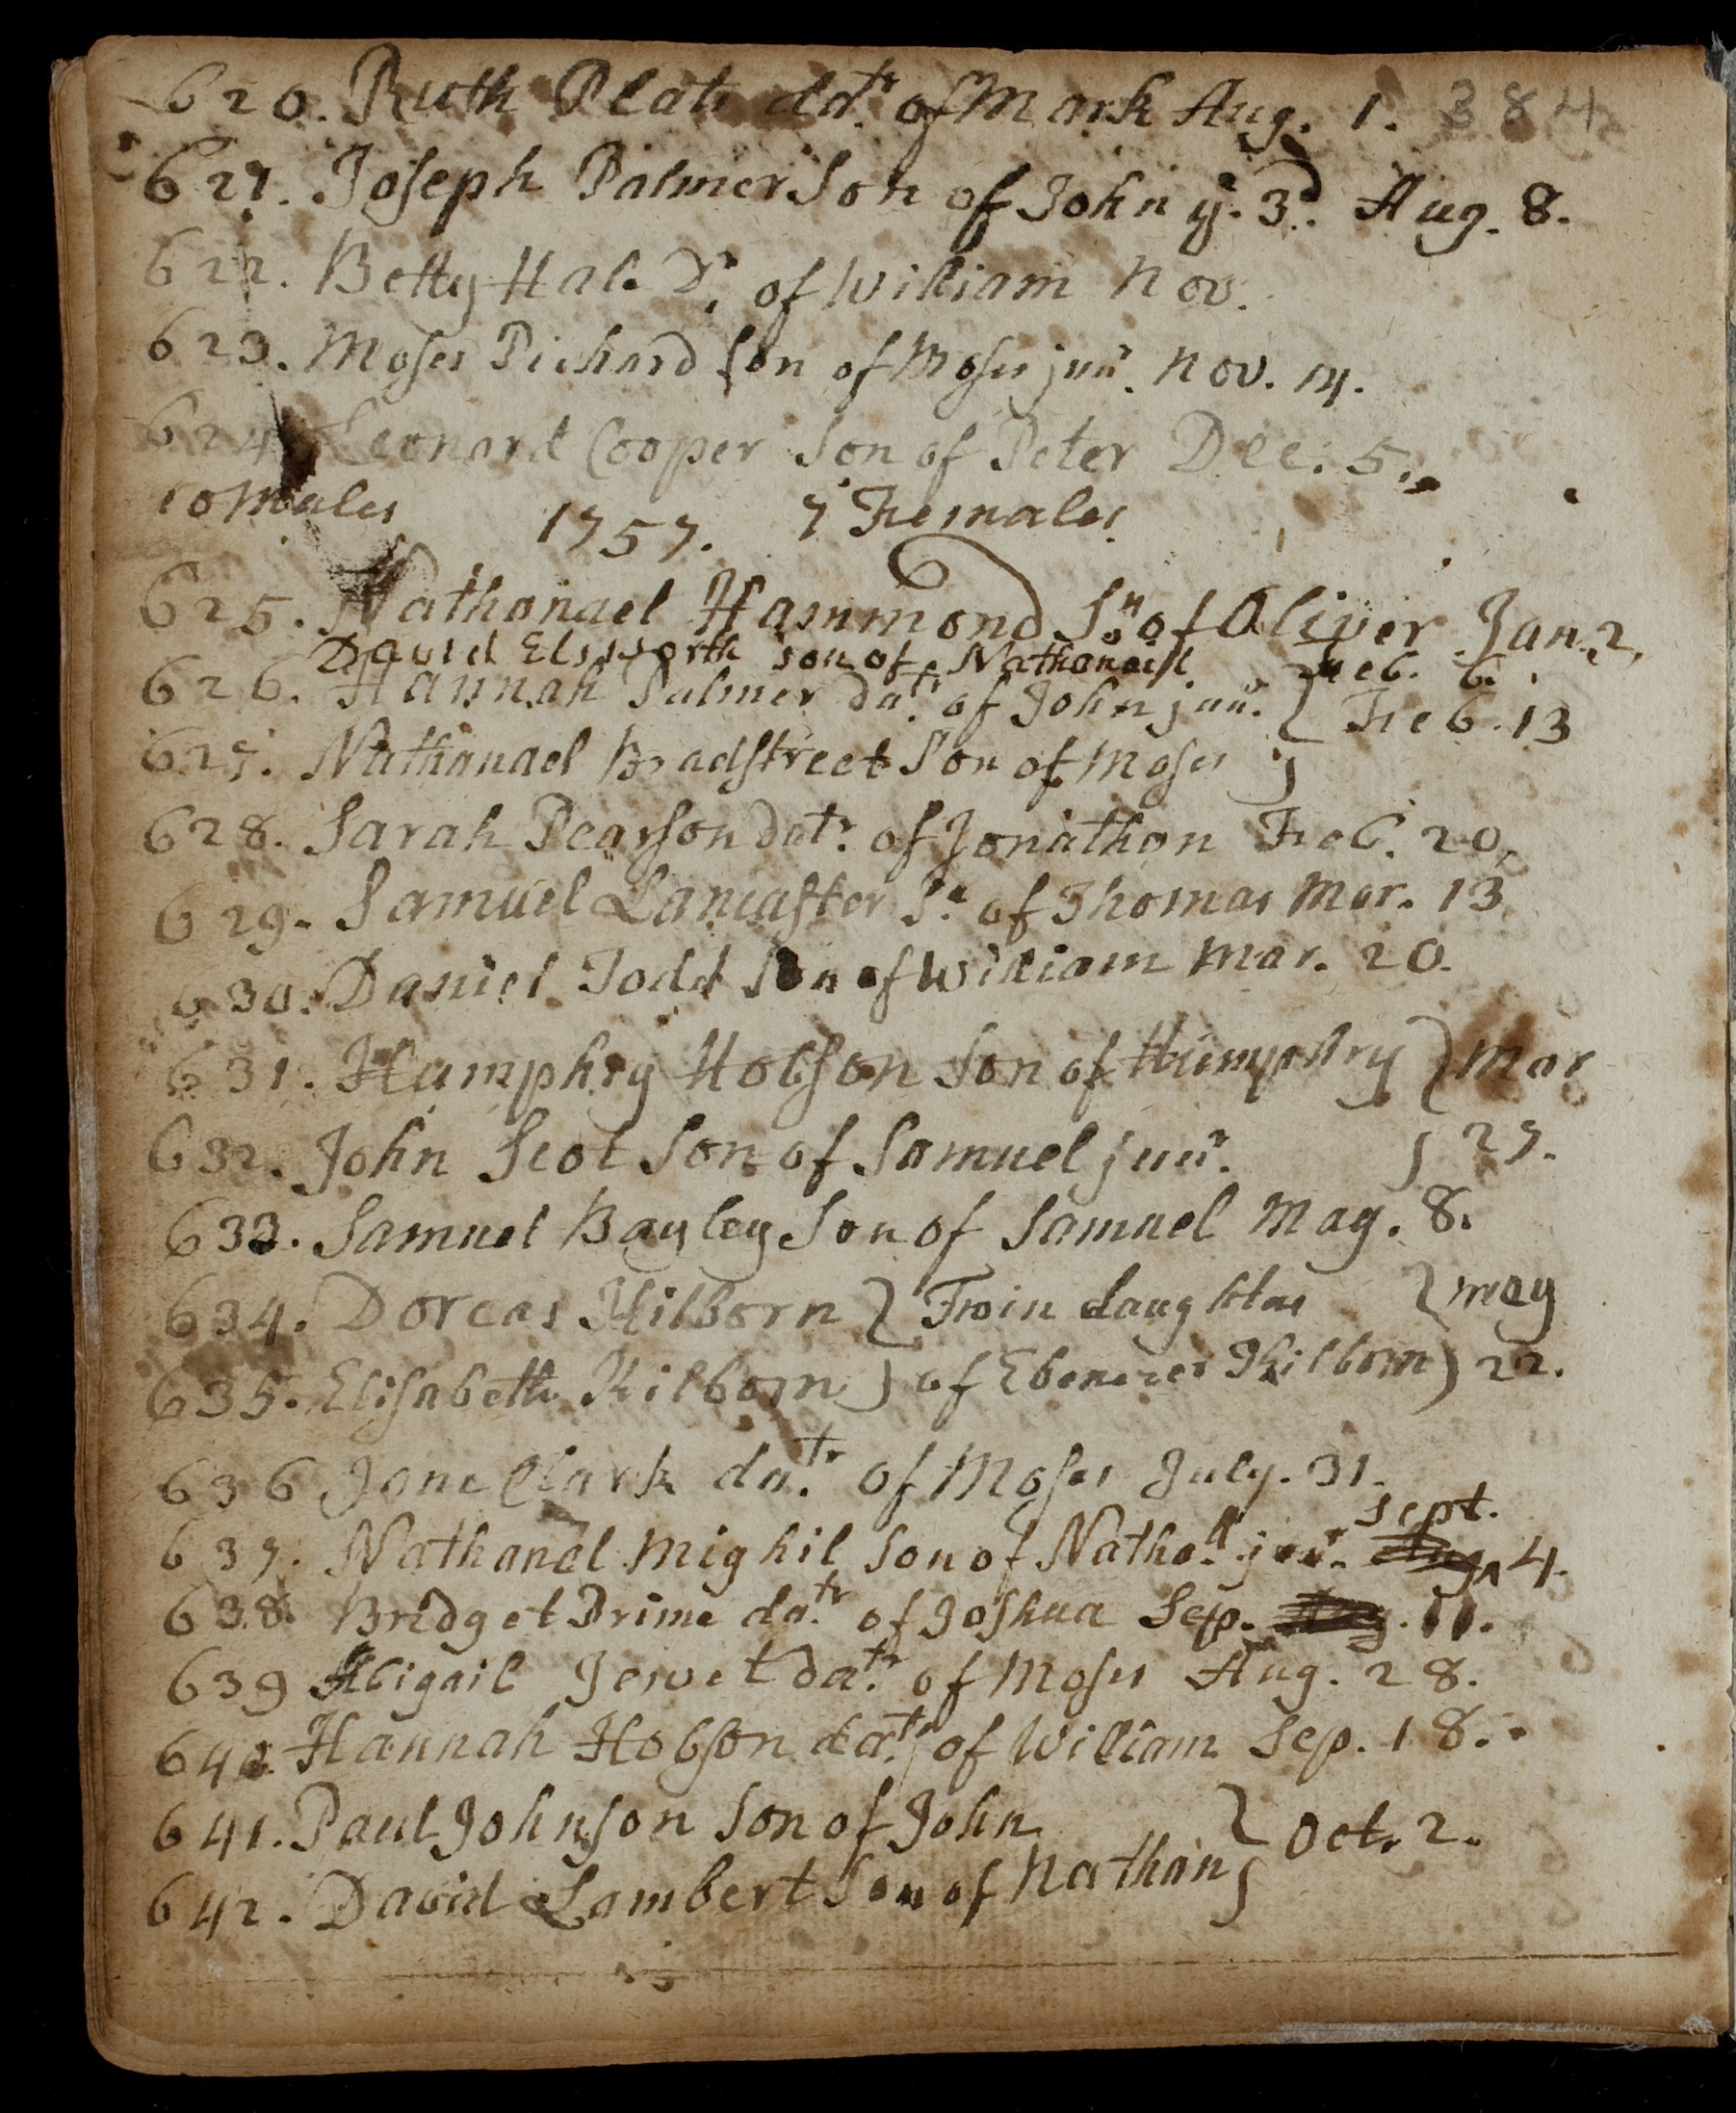 620. Ruth Plats datr. of Mark Aug. 1. 384
621. Joseph Palmer Son of John ye. 3d. Aug. 8.
622. Betty Hale Dr. of William Nov.
623. Moses Pickard Son of Moses junr. Nov. 14.
624. Leonard Cooper Son of Peter Dec. 5.
10 Males 1757. 7 Females
625. Nathanael Hammond Sn. of Oliver Jan. 2.
David Elsworth son of Nathanaiel Feb. 6.
626. Hannah Palmer datr. of John junr. } Feb. 13
627. Nathanael Bradstreet Son of Moses }
628. Sarah Pearson datr. of Jonathan Feb. 20.
629. Samuel Lancaster Sn. of Thomas Mar. 13
630. Daniel Todd Son of William Mar. 20.
631. Humphry Hobson Son of Humphry } Mar
632. John Scot Son of Samuel junr. } 27.
633. Samuel Bayley Son of Samuel May. 8.
634. Dorcas Kilborn } Twin daughters } may
635. Elisabeth Kilborn } of Ebenezer Kilborn } 22.
636 Jane Clark datr. of Moses July. 31.
Sept.
637. Nathanael Mighil Son of Nathall. junr. Aug. ^ 4.
638. Bridget Prime datr. of Joshua Sep. Aug. 11.
639 Abigail Jewet datr. of Moses Aug. 28.
640. Hannah Hobson datr. of William Sep. 18.
641. Paul Johnson Son of John } Oct. 2.
642. David Lambert Son of Nathan }